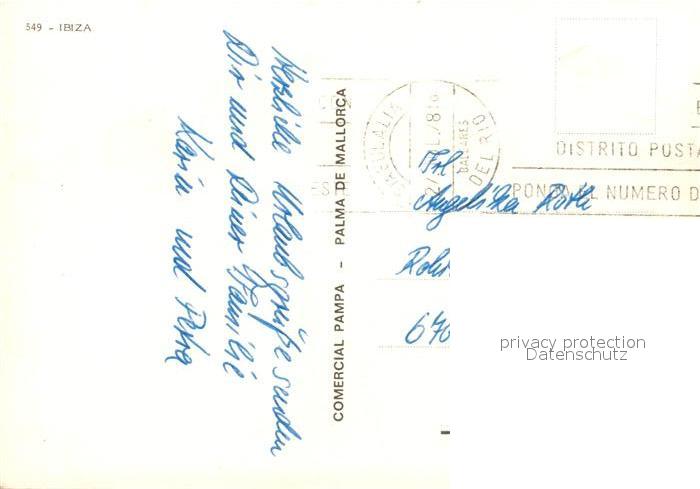 549 - IBIZA
Herzliche Urlaubsgrüße senden
Dir und Deiner Familie
Karin und Petra
COMERCIAL PAMPA - PALMA DE MALLORCA
STA EULALIA
DEL RIO
BALEARES
DISTRITO POSTA
PONGA EL NUMERO D
Frl
Angelika Roth
Rohr
670
privacy protection
Datenschutz